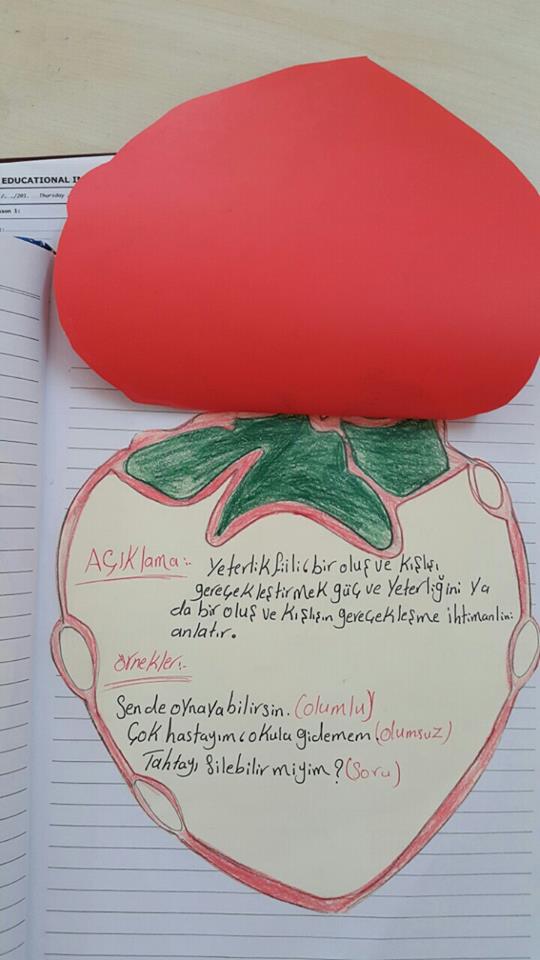 EDUCATIONAL
/.. ../201. Thursday
AÇIKlama:-
Yeterlik fiili؛ bir oluş ve kışlışı
gereçekleştirmek güç ve Yeterliğini ya
da bir oluş ve kışlışın gereçekleşme ihtimanlini
anlatır.
örnekler:-
Sende oynayabilirsin. (olumlu)
Çok hastayım؛ okula gidemem (olumsuz)
Tahtayı silebilir miyim? (soru)